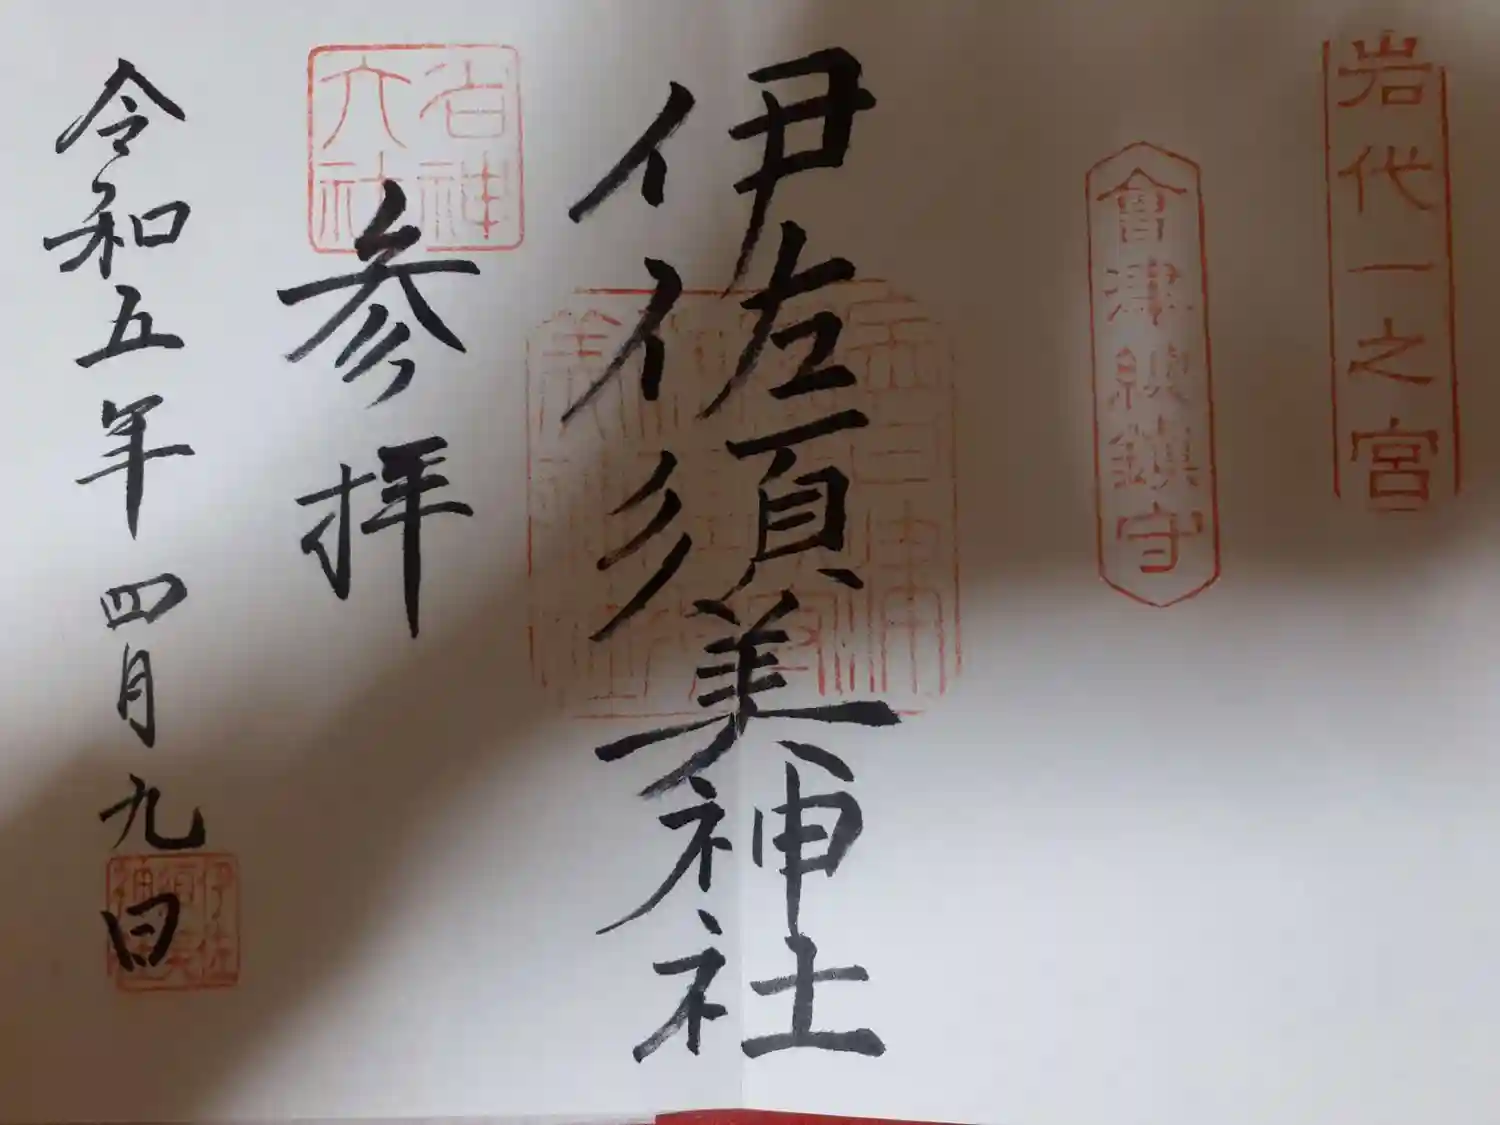 岩代一之宮
會津總鎮守
伊佐須美神社
名神大社
参拝
令和五年四月九日
伊佐須美神社